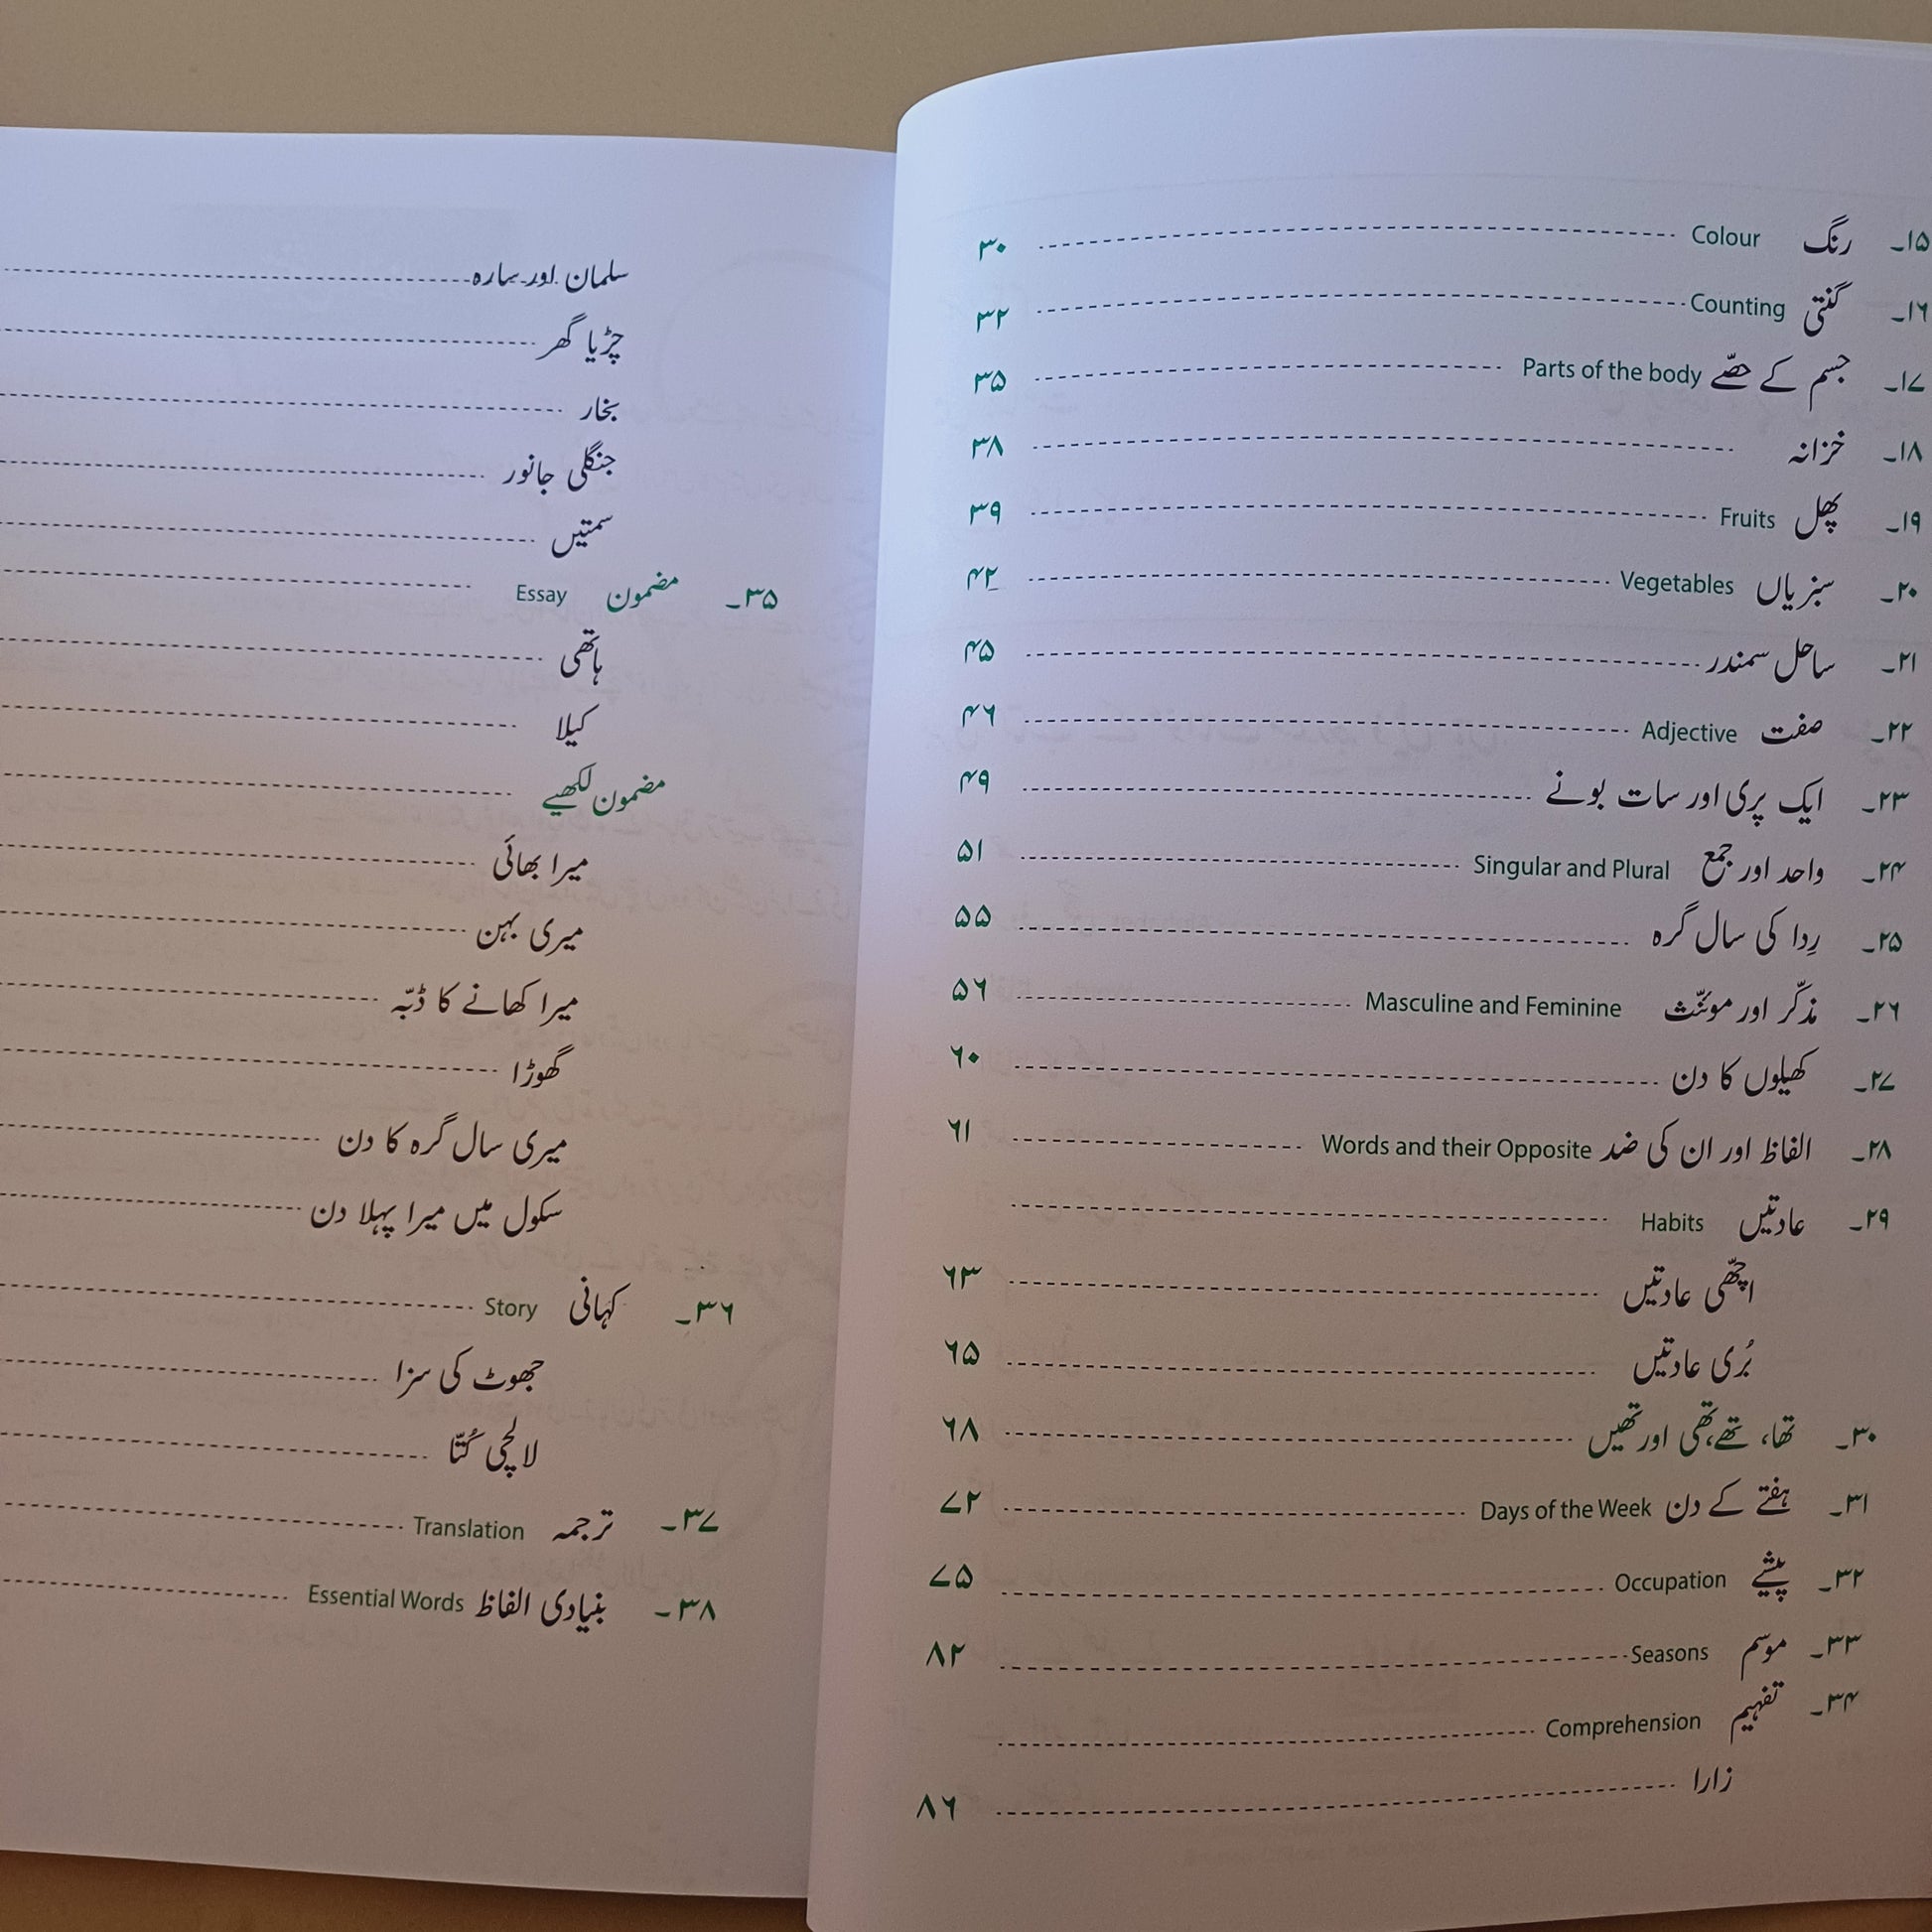 ۱۵۔ رنگ Colour ۳۰
۱۶۔ گنتی Counting ۳۲
۱۷۔ جسم کے حصّے Parts of the body ۳۵
۱۸۔ خزانہ ۳۸
۱۹۔ پھل Fruits ۳۹
۲۰۔ سبزیاں Vegetables ۴۲
۲۱۔ ساحل سمندر ۴۵
۲۲۔ صفت Adjective ۴۶
۲۳۔ ایک پری اور سات بونے ۴۹
۲۴۔ واحد اور جمع Singular and Plural ۵۱
۲۵۔ رِدا کی سال گرہ ۵۵
۲۶۔ مذکّر اور موئنّث Masculine and Feminine ۵۶
۲۷۔ کھیلوں کا دن ۶۰
۲۸۔ الفاظ اور ان کی ضد Words and their Opposite ۶۱
۲۹۔ عادتیں Habits
اچھّی عادتیں ۶۳
بُری عادتیں ۶۵
۳۰۔ تھا، تھے، تھی اور تھیں ۶۸
۳۱۔ ہفتے کے دن Days of the Week ۷۲
۳۲۔ پیشے Occupation ۷۵
۳۳۔ موسم Seasons ۸۲
۳۴۔ تفہیم Comprehension
زارا ۸۶
سلمان اور سارہ
چڑیا گھر
بخار
جنگلی جانور
سمتیں
۳۵۔ مضمون Essay
ہاتھی
کیلا
مضمون لکھیے
میرا بھائی
میری بہن
میرا کھانے کا ڈبّہ
گھوڑا
میری سال گرہ کا دن
سکول میں میرا پہلا دن
۳۶۔ کہانی Story
جھوٹ کی سزا
لالچی کُتّا
۳۷۔ ترجمہ Translation
۳۸۔ بنیادی الفاظ Essential Words